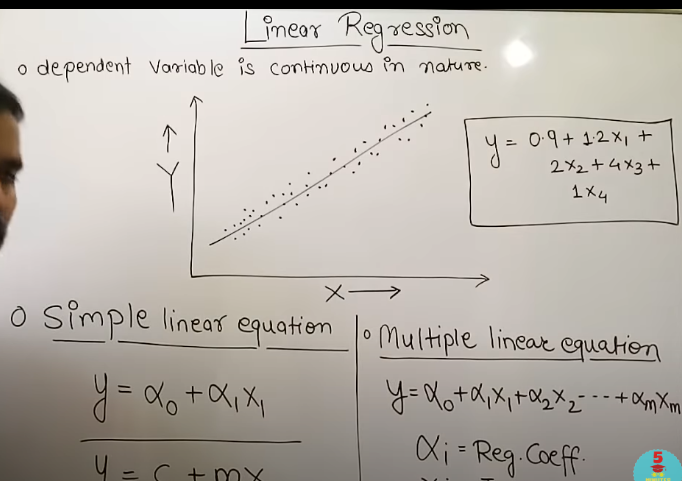 Linear Regression
o dependent variable is continuous in nature.
Y
X
y = 0.9 + 1.2x₁ +
2x₂ + 4x₃ +
1x₄
o Simple linear equation
y = α₀ + α₁x₁
y = c + mx
o Multiple linear equation
y = α₀ + α₁x₁ + α₂x₂ --- + αₘxₘ
αi = Reg. Coeff.
5